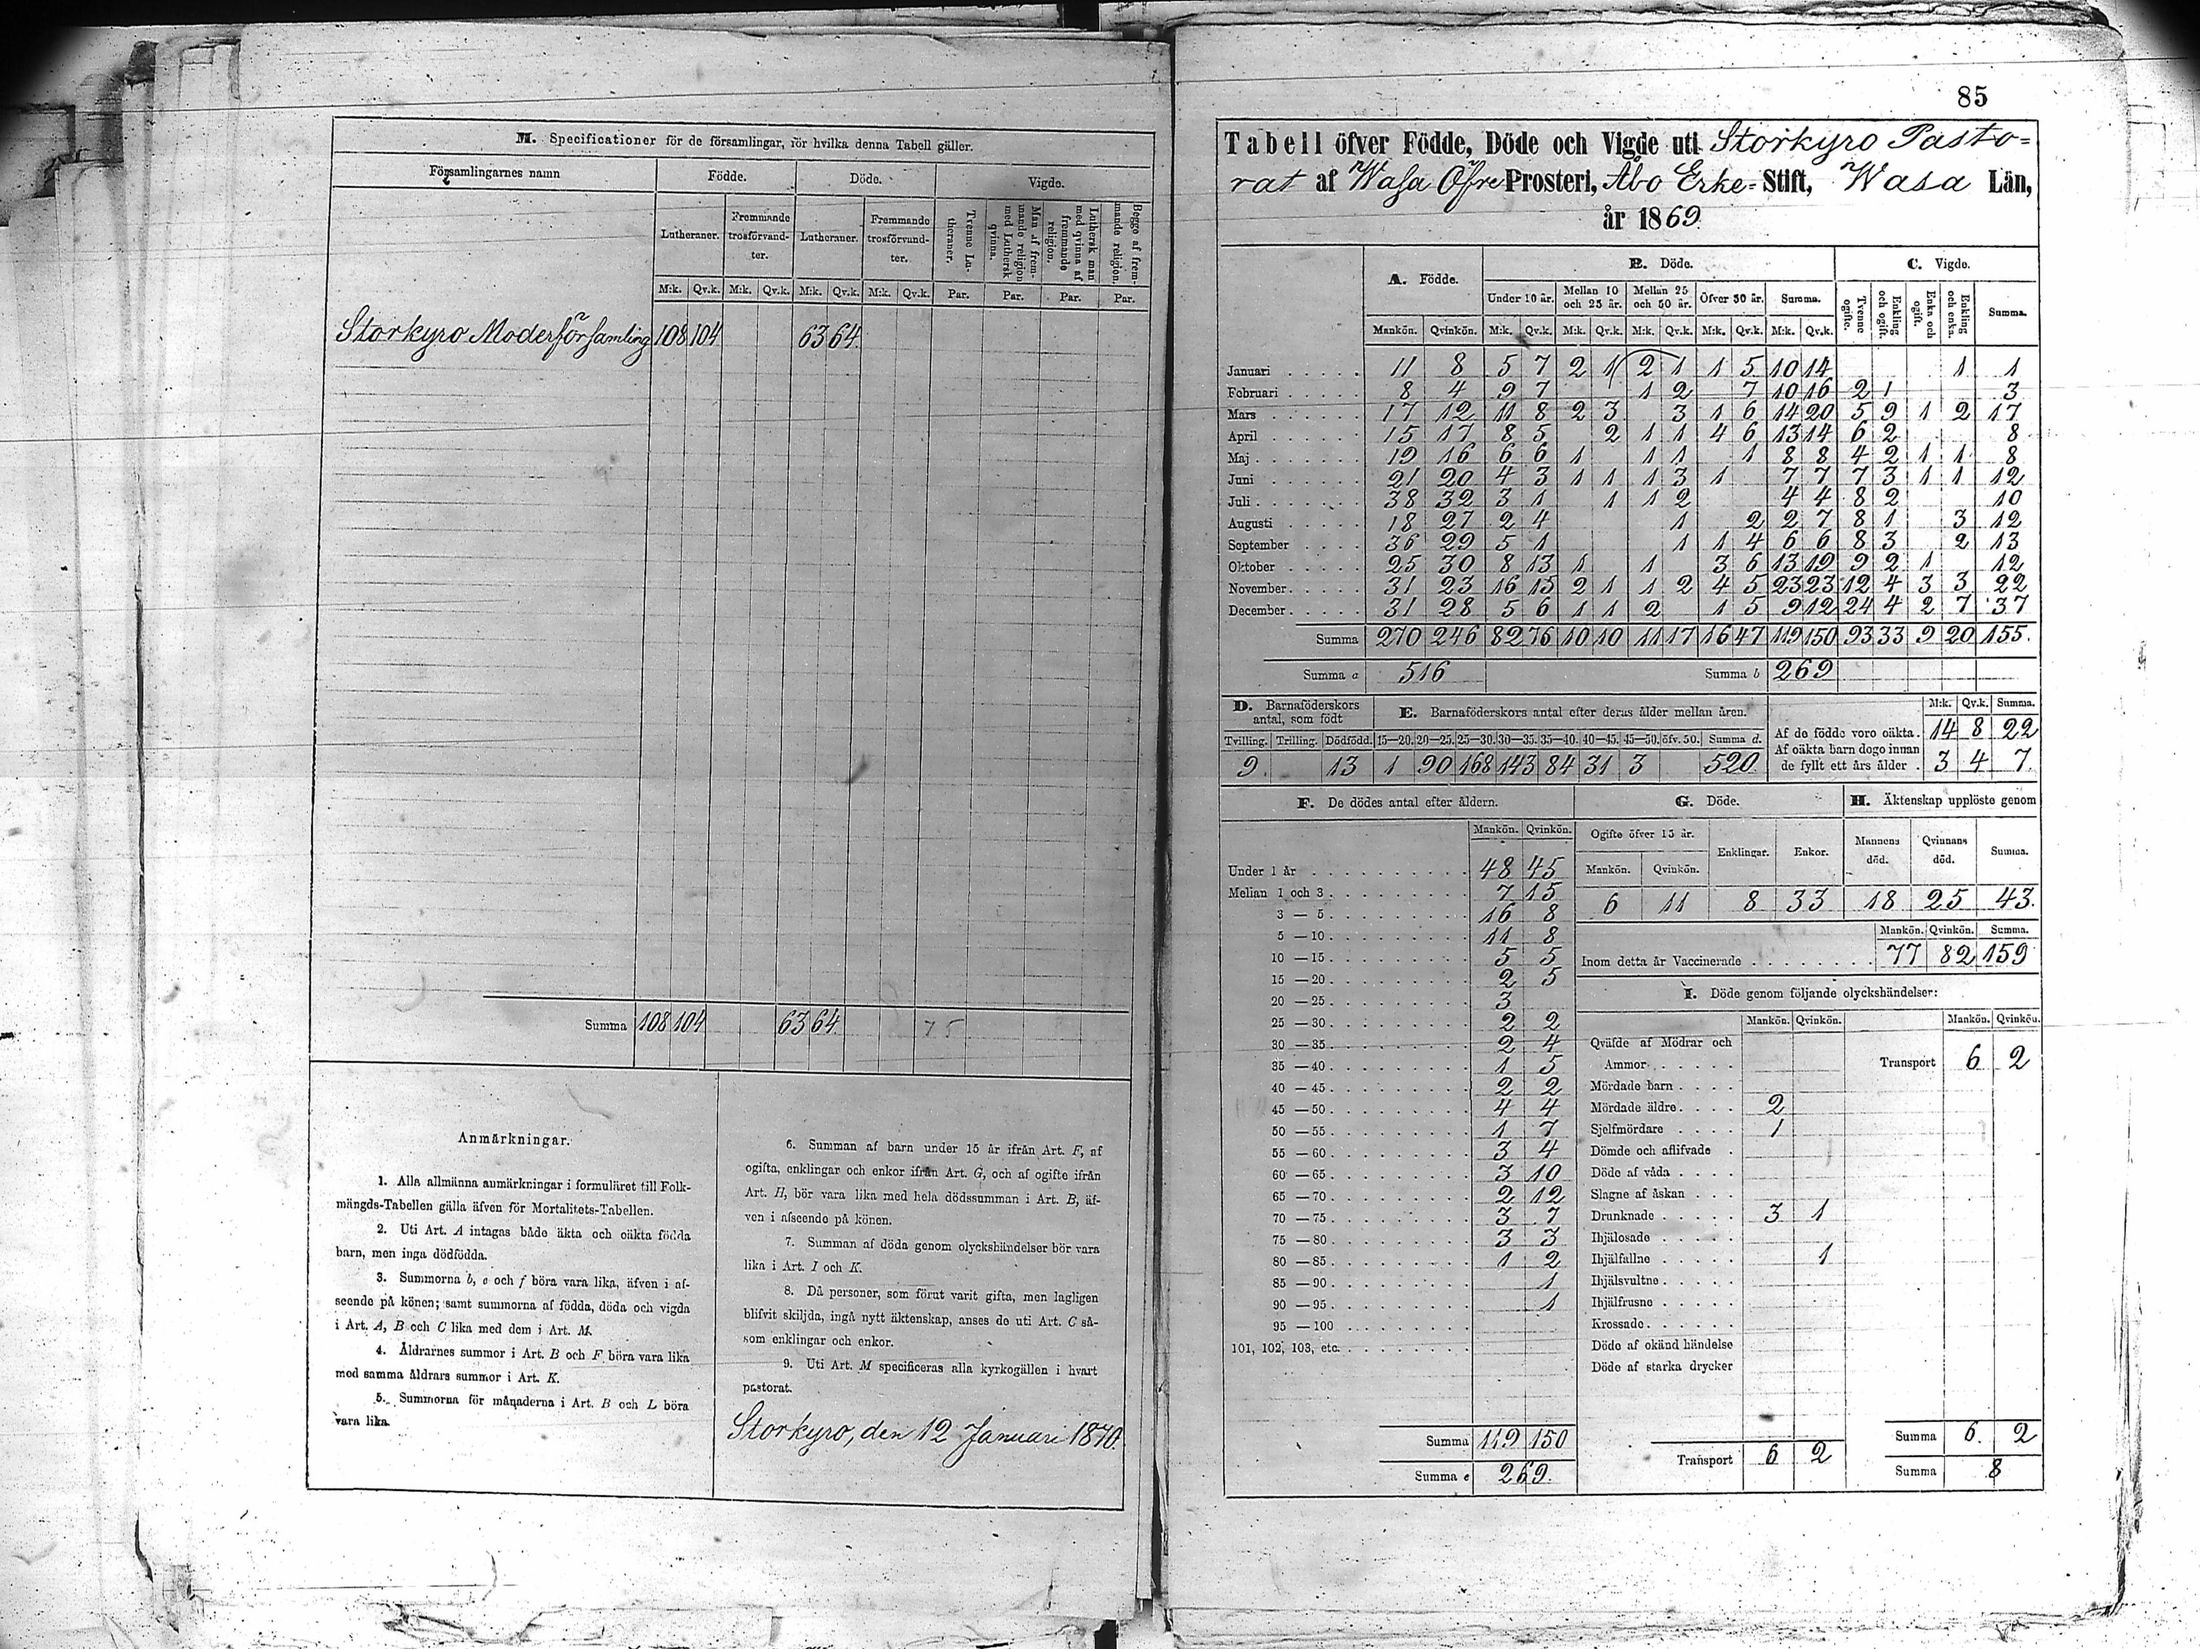 M. Specificationer för de församlingar, för hvilka denna Tabell gäller.
Församlingarnes namn Födde. Döde. Vigde.
Lutheraner. Fremmande trosförvandter. Lutheraner. Fremmande trosförvandter. Tvenne Lutheraner. Man af fremmande religion med Luthersk qvinna. Luthersk man med qvinna af fremmande religion. Begge af fremmande religion.
M:k. Qv.k. M:k. Qv.k. M:k. Qv.k. M:k. Qv.k. Par. Par. Par. Par.
Storkyro Moderförsamling 108 104 63 64
Summa 108 104 63 64 75
Anmärkningar.
1. Alla allmänna anmärkningar i formuläret till Folk-
mängds-Tabellen gälla äfven för Mortalitets-Tabellen.
2. Uti Art. A intagas både äkta och oäkta födda
barn, men inga dödfödda.
3. Summorna b, e och f böra vara lika, äfven i af-
seende på könen; samt summorna af födda, döda och vigda
i Art. A, B och C lika med dem i Art. M.
4. Åldrarnes summor i Art. B och F böra vara lika
med samma åldrars summor i Art. K.
5. Summorna för månaderna i Art. B och L böra
vara lika.
6. Summan af barn under 15 år ifrån Art. F, af
ogifta, enklingar och enkor ifrån Art. G, och af ogifte ifrån
Art. H, bör vara lika med hela dödssumman i Art. B, äf-
ven i afseende på könen.
7. Summan af döda genom olyckshändelser bör vara
lika i Art. I och K.
8. Då personer, som förut varit gifta, men lagligen
blifvit skiljda, ingå nytt äktenskap, anses de uti Art. C så-
som enklingar och enkor.
9. Uti Art. M specificeras alla kyrkogällen i hvart
pastorat.
Storkyro, den 12 Januari 1870.
85
Tabell öfver Födde, Döde och Vigde uti Storkyro Pasto=
rat af Wasa Öfre Prosteri, Åbo Erke= Stift, Wasa Län,
år 1869.
A. Födde. B. Döde. C. Vigde.
Under 10 år. Mellan 10 och 25 år. Mellan 25 och 50 år. Öfver 50 år. Summa. Tvenne ogifte. Enkling och ogift. Enka och ogift. Enkling och enka. Summa.
Mankön. Qvinkön. M:k. Qv.k. M:k. Qv.k. M:k. Qv.k. M:k. Qv.k. M:k. Qv.k.
Januari 11 8 5 7 2 1 2 1 1 5 10 14 1 1
Februari 8 4 9 7 1 2 7 10 16 2 1 3
Mars 17 12 11 8 2 3 3 1 6 14 20 5 9 1 2 17
April 15 17 8 5 2 1 1 4 6 13 14 6 2 8
Maj 19 16 6 6 1 1 1 1 8 8 4 2 1 1 8
Juni 21 20 4 3 1 1 1 3 1 7 7 7 3 1 1 12
Juli 38 32 3 1 1 1 2 4 4 8 2 10
Augusti 18 27 2 4 1 2 2 7 8 1 3 12
September 36 29 5 1 1 1 4 6 6 8 3 2 13
Oktober 25 30 8 13 1 1 3 6 13 19 9 2 1 12
November 31 23 16 15 2 1 1 2 4 5 23 23 12 4 3 3 22
December 31 28 5 6 1 1 2 1 5 9 12 24 4 2 7 37
Summa 270 246 82 76 10 10 11 17 16 47 119 150 93 33 9 20 155.
Summa a 516 Summa b 269
D. Barnaföderskors antal, som födt
E. Barnaföderskors antal efter deras ålder mellan åren.
M:k. Qv.k. Summa.
Tvilling. Trilling. Dödfödd. 15—20. 20—25. 25—30. 30—35. 35—40. 40—45. 45—50. öfv. 50. Summa d.
9. 13 1 90 168 143 84 31 3 520
Af de födde voro oäkta. 14 8 22
Af oäkta barn dogo innan de fyllt ett års ålder . 3 4 7.
F. De dödes antal efter åldern.
Mankön. Qvinkön.
Under 1 år 48 45
Mellan 1 och 3 7 15
3 — 5 16 8
5 — 10 11 8
10 — 15 5 5
15 — 20 2 5
20 — 25 3
25 — 30 2 2
30 — 35 2 4
35 — 40 1 5
40 — 45 2 2
45 — 50 4 4
50 — 55 1 7
55 — 60 3 4
60 — 65 3 10
65 — 70 2 12
70 — 75 3 7
75 — 80 3 3
80 — 85 1 2
85 — 90 1
90 — 95 1
95 — 100
101, 102, 103, etc.
Summa 119 150
Summa e 269.
G. Döde.
Ogifte öfver 15 år. Enklingar. Enkor.
Mankön. Qvinkön.
6 11 8 33
H. Äktenskap upplöste genom
Mannens död. Qvinnans död. Summa.
18 25 43.
Mankön. Qvinkön. Summa.
Inom detta år Vaccinerade 77 82 159
I. Döde genom följande olyckshändelser:
Mankön. Qvinkön. Mankön. Qvinkön.
Qväfde af Mödrar och
Ammor
Transport 6 2
Mördade barn
Mördade äldre 2
Sjelfmördare 1
Dömde och aflifvade
Döde af våda
Slagne af åskan
Drunknade 3 1
Ihjälosade
Ihjälfallne 1
Ihjälsvultne
Ihjälfrusne
Krossade
Döde af okänd händelse
Döde af starka drycker
Transport 6 2
Summa 6. 2
Summa 8